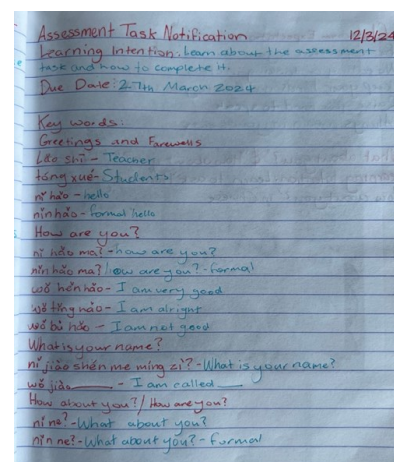 Assessment Task Notification 12/3/24
Learning Intention: Learn about the assessment
task and how to complete it.
Due Date: 27th March 2024
Key words:
Greetings and Farewells
Lǎo shī - Teacher
tóng xué - Students
nǐ hǎo - hello
nín hǎo - formal hello
How are you?
nǐ hǎo ma? - how are you?
nín hǎo ma? How are you? - formal
wǒ hěn hǎo - I am very good
wǒ tǐng hǎo - I am alright
wǒ bù hǎo - I am not good
What is your name?
nǐ jiào shén me míng zì? - What is your name?
wǒ jiào ____ - I am called ____
How about you? / How are you?
nǐ ne? - What about you?
nín ne? - What about you? - formal